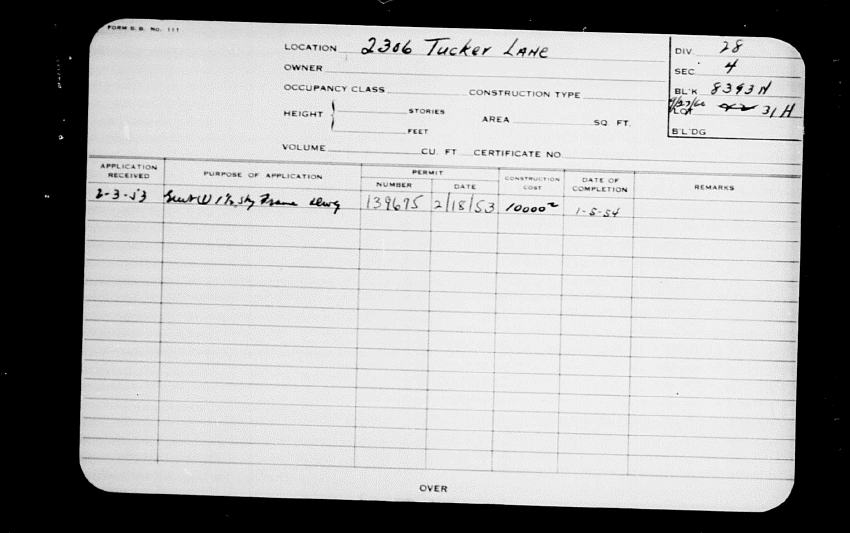 FORM B. B. NO. 111
LOCATION 2306 Tucker Lane
OWNER
OCCUPANCY CLASS CONSTRUCTION TYPE
HEIGHT STORIES
FEET
AREA SQ. FT.
VOLUME CU. FT CERTIFICATE NO.
DIV. 28
SEC. 4
BL'K 8393 N
LOT 31 H
B'L'DG
APPLICATION RECEIVED PURPOSE OF APPLICATION PERMIT NUMBER DATE CONSTRUCTION COST DATE OF COMPLETION REMARKS
2-3-53 1½ sty Frame dwg 139675 2/18/53 10000 1-5-54
OVER